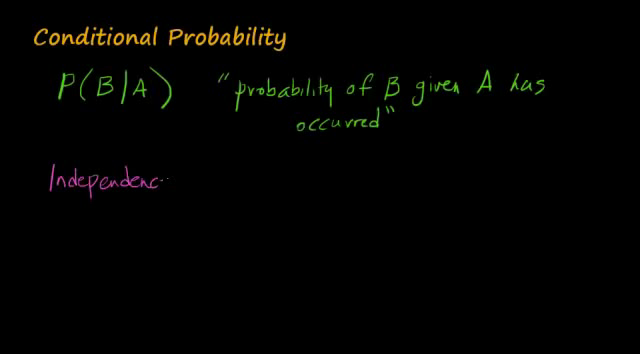 Conditional Probability
P(B/A) "probability of B given A has
occurred"
Independenc